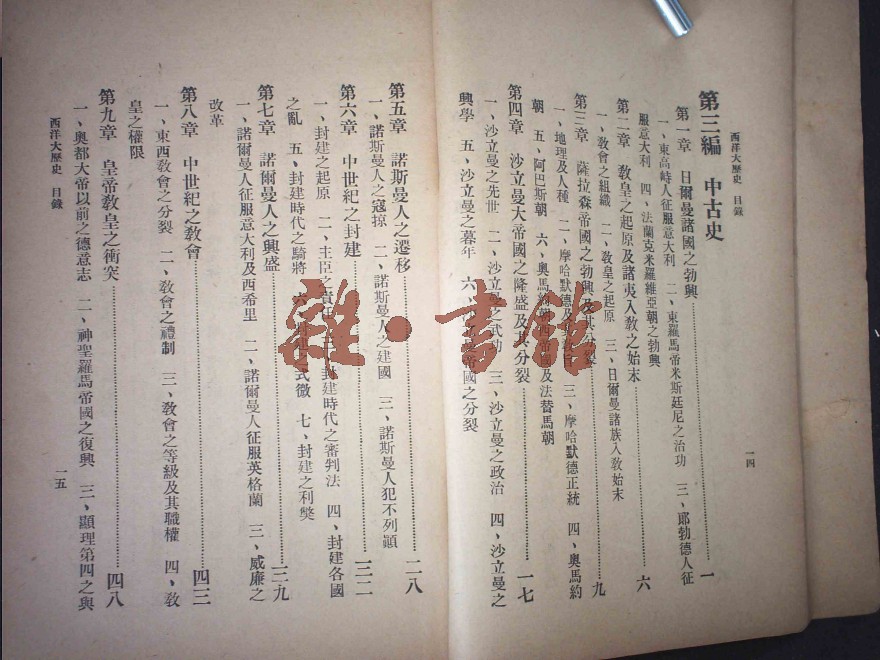 西洋大歷史 目錄
一四
第三編 中古史
第一章 日爾曼諸國之勃興……一
一、東高峙人征服意大利 二、東羅馬帝米斯廷尼之治功 三、耶勃德人征
服意大利 四、法蘭克米羅維亞朝之勃興
第二章 敎皇之起原及諸夷入敎之始末……六
一、敎會之組織 二、敎皇之起原 三、日爾曼諸族入敎始末
第三章 薩拉森帝國之勃興及其分裂……九
一、地理及人種 二、摩哈默德及 三、摩哈默德正統 四、奧馬約
朝 五、阿巴斯朝 六、奧馬約朝西帝國及法替馬朝
第四章 沙立曼大帝國之隆盛及其分裂……一七
一、沙立曼之先世 二、沙立曼之武功 三、沙立曼之政治 四、沙立曼之
興學 五、沙立曼之暮年 六、沙立曼帝國之分裂
第五章 諾斯曼人之遷移……二八
一、諾斯曼人之寇掠 二、諾斯曼人之建國 三、諾斯曼人犯不列顚
第六章 中世紀之封建……三二
一、封建之起原 二、主臣之責任 三、封建時代之審判法 四、封建各國
之亂 五、封建時代之騎將 六、封建之式微 七、封建之利獘
第七章 諾爾曼人之興盛……三九
一、諾爾曼人征服意大利及西希里 二、諾爾曼人征服英格蘭 三、威廉之
改革
第八章 中世紀之敎會……四三
一、東西敎會之分裂 二、敎會之禮制 三、敎會之等級及其職權 四、敎
皇之權限
第九章 皇帝敎皇之衝突……四八
一、奧都大帝以前之德意志 二、神聖羅馬帝國之復興 三、顯理第四之與
西洋大歷史 目錄
一五
雜·書館